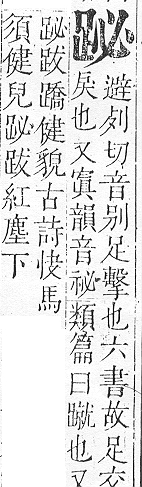 䟆
避列切音別足擊也六書故足交
戾也又寘韻音祕類篇曰蹴也又
䟆跋蹻健貌古詩快馬
須健兒䟆跋紅塵下